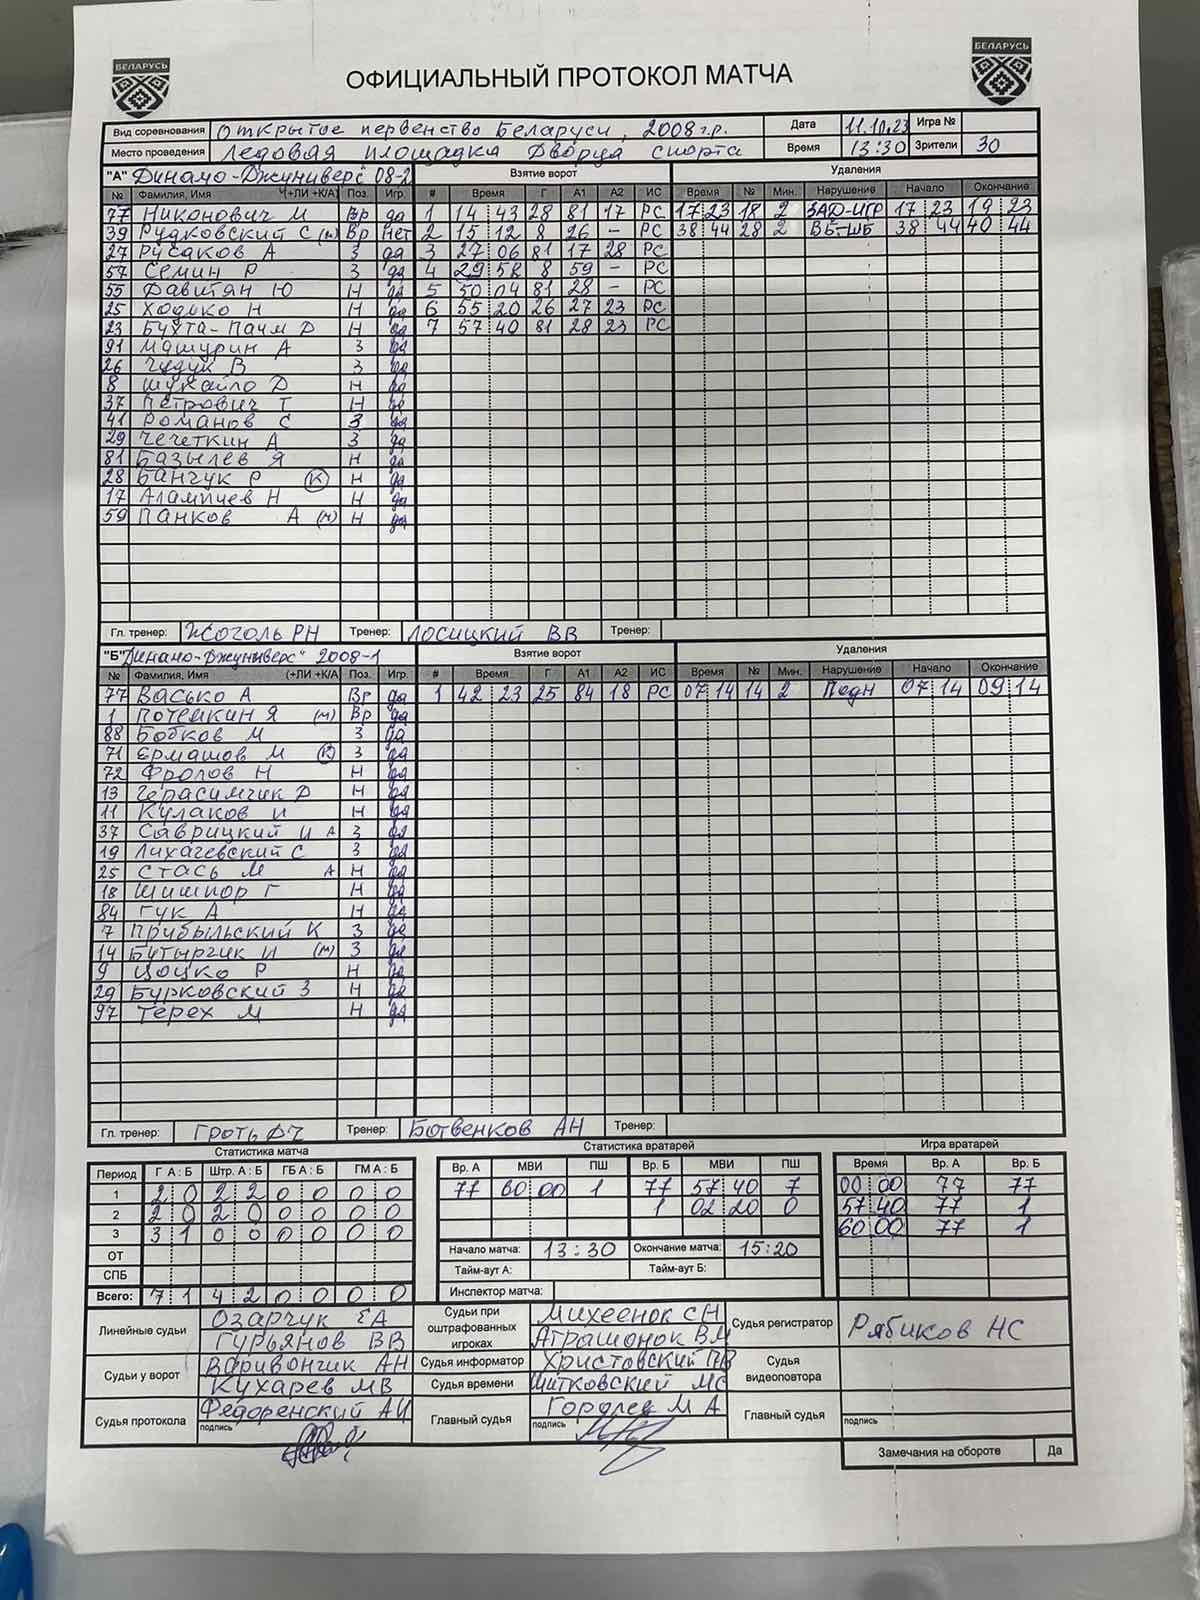 БЕЛАРУСЬ
БЕЛАРУСЬ
ОФИЦИАЛЬНЫЙ ПРОТОКОЛ МАТЧА
Вид соревнования Открытое первенство Беларуси, 2008 г.р. Дата 11.10.23 Игра №
Место проведения Ледовая площадка Дворца спорта Время 13:30 Зрители 30
"А" Динамо-Джуниверс 08-2 Взятие ворот Удаления
№ Фамилия, Имя (+ЛИ +К/А) Поз. Игр. # Время Г А1 А2 ИС Время № Мин. Нарушение Начало Окончание
77 Никонович М Вр да 1 14 43 28 81 17 РС 17 23 18 2 ЗАД-ИГР 17 23 19 23
39 Рудковский С (м) Вр Нет 2 15 12 8 26 – РС 38 44 28 2 ВБ-ШБ 38 44 40 44
27 Русаков А З да 3 27 06 81 17 28 РС
57 Семин Р З да 4 29 58 8 59 – РС
55 Давитян Ю Н да 5 50 04 81 28 – РС
25 Ходько Н Н да 6 55 20 26 27 23 РС
23 Бухта-Пачм Д Н да 7 57 40 81 28 23 РС
91 Машурин А З да
26 Чудук В З да
8 Шукайло Д Н да
37 Петрович Т Н да
41 Романов С З да
29 Чечеткин А З да
81 Базылев Я Н да
28 Банчук Р (К) Н да
17 Алампиев Н Н да
59 Панков А (м) Н да
Гл. тренер: Жоголь РН Тренер: Лосицкий ВВ Тренер:
"Б" Динамо-Джуниверс" 2008-1 Взятие ворот Удаления
№ Фамилия, Имя (+ЛИ +К/А) Поз. Игр. # Время Г А1 А2 ИС Время № Мин. Нарушение Начало Окончание
77 Васько А Вр да 1 42 23 25 84 18 РС 07 14 14 2 Подн 07 14 09 14
1 Потемкин Я (м) Вр да
88 Бобков М З да
71 Ермашов М (К) З да
72 Фролов Н Н да
13 Герасимчик Д Н да
11 Кулаков И Н да
37 Саврицкий И А З да
19 Лихачевский С З да
25 Стась М А Н да
18 Шишпор Г Н да
84 Гук А Н да
7 Прибыльский К З да
14 Бутыргчик И (м) З да
9 Цоцко Р Н да
29 Бурковский З Н да
97 Терех М Н да
Гл. тренер: Гроть Тренер: Ботвенков АН Тренер:
Статистика матча Статистика вратарей Игра вратарей
Период Г А : Б Штр. А : Б ГБ А : Б ГМ А : Б Вр. А МВИ ПШ Вр. Б МВИ ПШ Время Вр. А Вр. Б
1 2 0 2 2 0 0 0 0 77 60 00 1 77 57 40 7 00 00 77 77
2 2 0 2 0 0 0 0 0 1 02 20 0 57 40 77 1
3 3 1 0 0 0 0 0 0 60 00 77 1
ОТ Начало матча: 13:30 Окончание матча: 15:20
СПБ Тайм-аут А: Тайм-аут Б:
Всего: 7 1 4 2 0 0 0 0 Инспектор матча:
Линейные судьи Озарчук ЕА Судьи при оштрафованных игроках Михеенок СН Судья регистратор Рябиков НС
Гурьянов ВВ Аграшонок ВМ
Судьи у ворот Варивончик АН Судья информатор Христовский ПВ Судья видеоповтора
Кухарев МВ Судья времени Шитковский МС
Судья протокола Федоренский АИ Главный судья Горелев МА Главный судья
подпись подпись подпись
Замечания на обороте Да